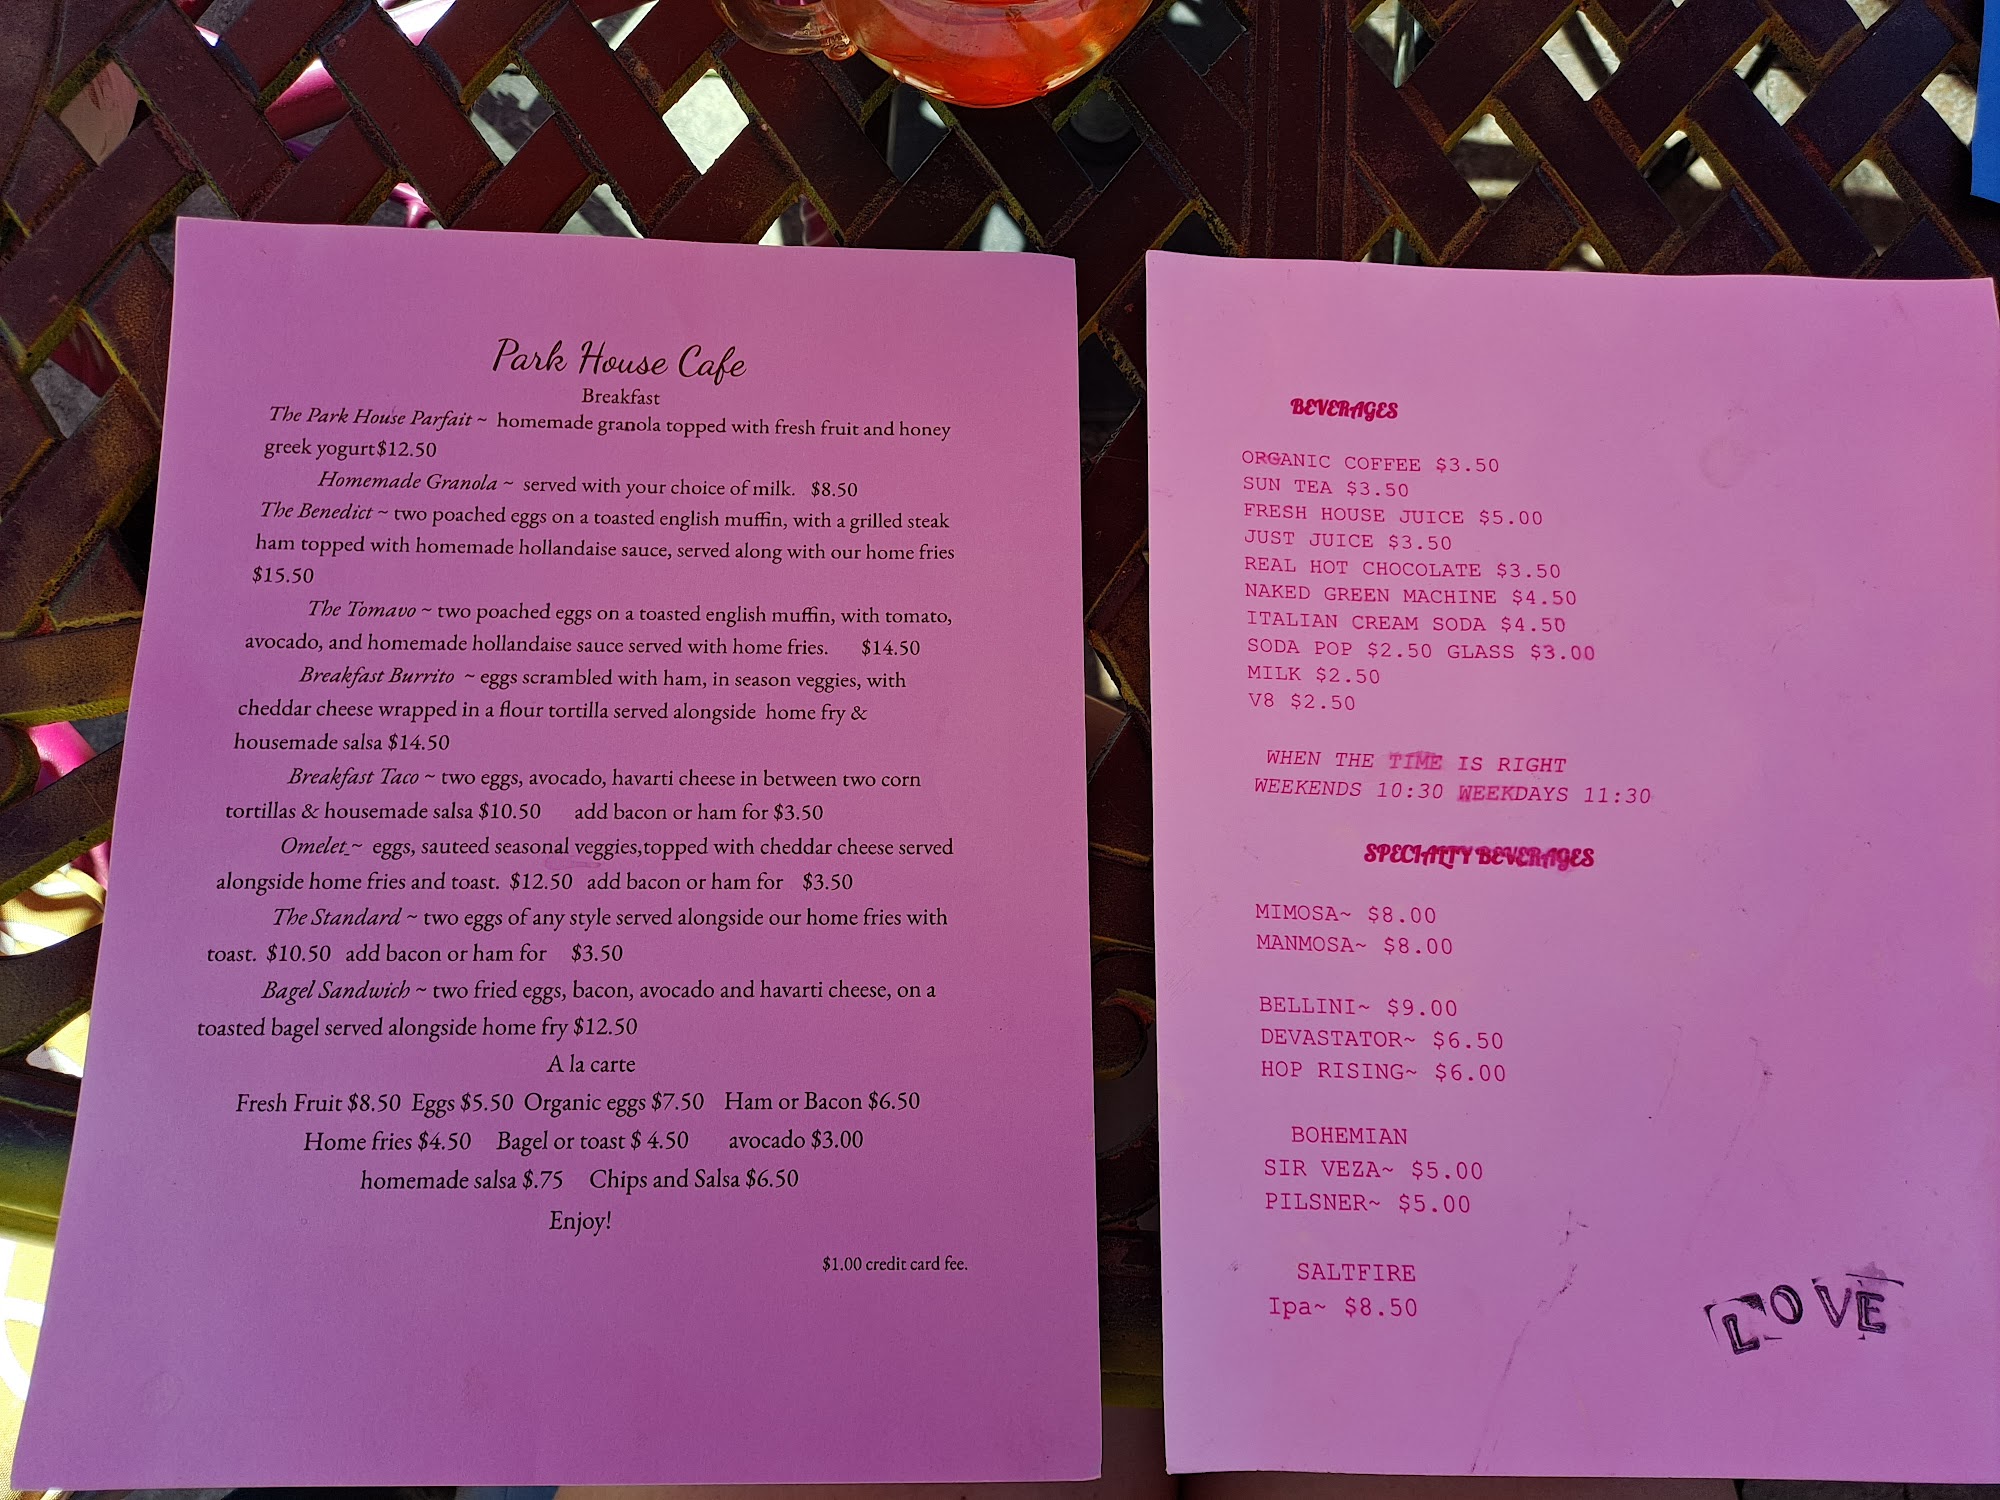 Park House Cafe
Breakfast
The Park House Parfait ~ homemade granola topped with fresh fruit and honey
greek yogurt$12.50
Homemade Granola ~ served with your choice of milk. $8.50
The Benedict ~ two poached eggs on a toasted english muffin, with a grilled steak
ham topped with homemade hollandaise sauce, served along with our home fries
$15.50
The Tomavo ~ two poached eggs on a toasted english muffin, with tomato,
avocado, and homemade hollandaise sauce served with home fries. $14.50
Breakfast Burrito ~ eggs scrambled with ham, in season veggies, with
cheddar cheese wrapped in a flour tortilla served alongside home fry &
housemade salsa $14.50
Breakfast Taco ~ two eggs, avocado, havarti cheese in between two corn
tortillas & housemade salsa $10.50 add bacon or ham for $3.50
Omelet ~ eggs, sauteed seasonal veggies,topped with cheddar cheese served
alongside home fries and toast. $12.50 add bacon or ham for $3.50
The Standard ~ two eggs of any style served alongside our home fries with
toast. $10.50 add bacon or ham for $3.50
Bagel Sandwich ~ two fried eggs, bacon, avocado and havarti cheese, on a
toasted bagel served alongside home fry $12.50
A la carte
Fresh Fruit $8.50 Eggs $5.50 Organic eggs $7.50 Ham or Bacon $6.50
Home fries $4.50 Bagel or toast $ 4.50 avocado $3.00
homemade salsa $.75 Chips and Salsa $6.50
Enjoy!
$1.00 credit card fee.
BEVERAGES
ORGANIC COFFEE $3.50
SUN TEA $3.50
FRESH HOUSE JUICE $5.00
JUST JUICE $3.50
REAL HOT CHOCOLATE $3.50
NAKED GREEN MACHINE $4.50
ITALIAN CREAM SODA $4.50
SODA POP $2.50 GLASS $3.00
MILK $2.50
V8 $2.50
WHEN THE TIME IS RIGHT
WEEKENDS 10:30 WEEKDAYS 11:30
SPECIALTY BEVERAGES
MIMOSA~ $8.00
MANMOSA~ $8.00
BELLINI~ $9.00
DEVASTATOR~ $6.50
HOP RISING~ $6.00
BOHEMIAN
SIR VEZA~ $5.00
PILSNER~ $5.00
SALTFIRE
Ipa~ $8.50
LOVE